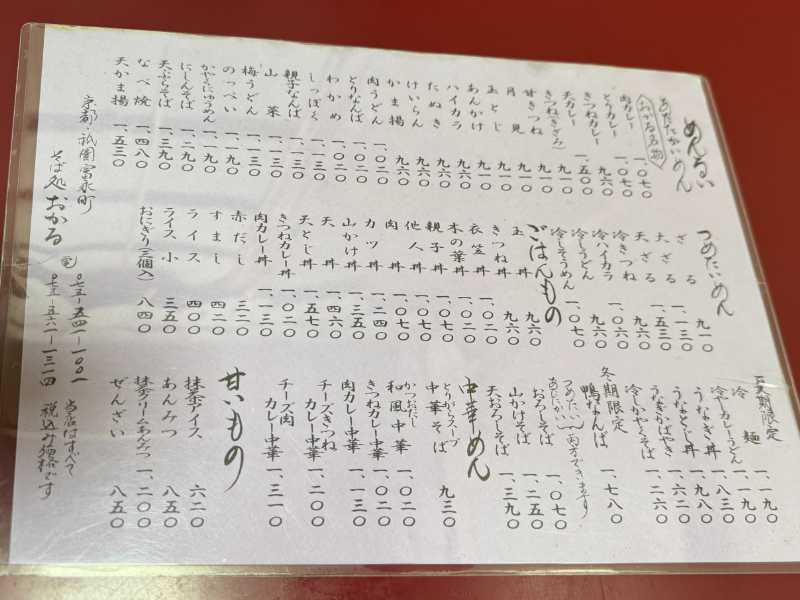 めんるい
あたたかいめん
おかる名物
肉カレー 一、〇七〇
とりカレー 一、〇七〇
きつねカレー 九六〇
天カレー 一、五〇〇
きつね(きざみ) 九一〇
甘きつね 九一〇
月見 九一〇
玉とじ 九一〇
あんかけ 九一〇
ハイカラ 九六〇
たぬき 九一〇
けいらん 九六〇
かま揚 九六〇
肉うどん 一、〇二〇
とりなんば 一、〇二〇
わかめ 一、〇二〇
しっぽく 一、一三〇
親子なんば 一、一三〇
山菜 一、一三〇
梅うどん 一、一三〇
のっぺい 一、一九〇
かやくにゅうめん 一、二九〇
にしんそば 一、二九〇
天ぷらそば 一、三九〇
なべ焼 一、四八〇
天かま揚 一、五三〇
つめたいめん
ざる 九一〇
天ざる 一、一三〇
天ざる 一、五三〇
冷きつね 九六〇
冷ハイカラ 一、〇六〇
冷しうどん 九六〇
冷しそうめん 一、〇七〇
ごはんもの
玉丼 九六〇
きつね丼 九六〇
衣笠丼 一、〇二〇
木の葉丼 一、〇二〇
親子丼 一、〇七〇
他人丼 一、〇七〇
肉丼 一、〇七〇
カツ丼 一、二四〇
山かけ丼 一、三五〇
天丼 一、四六〇
天とじ丼 一、五七〇
きつねカレー丼 一、〇二〇
肉カレー丼 一、一三〇
赤だし 三二〇
すまし 四二〇
ライス 四〇〇
ライス小 三五〇
おにぎり(三個入) 八四〇
夏期限定
冷麺 一、一九〇
冷やカレーうどん 一、一九〇
うなぎ丼 一、八三〇
うなとじ丼 一、九八〇
うなぎかばやき 一、六二〇
冷しかやくそば 一、二六〇
冬期限定
鴨なんば 一、七八〇
つめたい、あたたかい、両方できます
おろしそば 一、〇七〇
山かけそば 一、二五〇
天おろしそば 一、三九〇
中華めん
とりがらスープ
中華そば 九三〇
かつおだし
和風中華 一、〇二〇
きつねカレー中華 一、〇二〇
肉カレー中華 一、一三〇
チーズきつねカレー中華 一、二〇〇
チーズ肉カレー中華 一、三一〇
甘いもの
抹茶アイス 六二〇
あんみつ 八五〇
抹茶クリームあんみつ 一、二〇〇
ぜんざい 八五〇
京都・祇園富永町
そば処 おかる
〇七五-五四一-一〇〇一
〇七五-五六一-一三一四
当店はすべて
税込み価格です